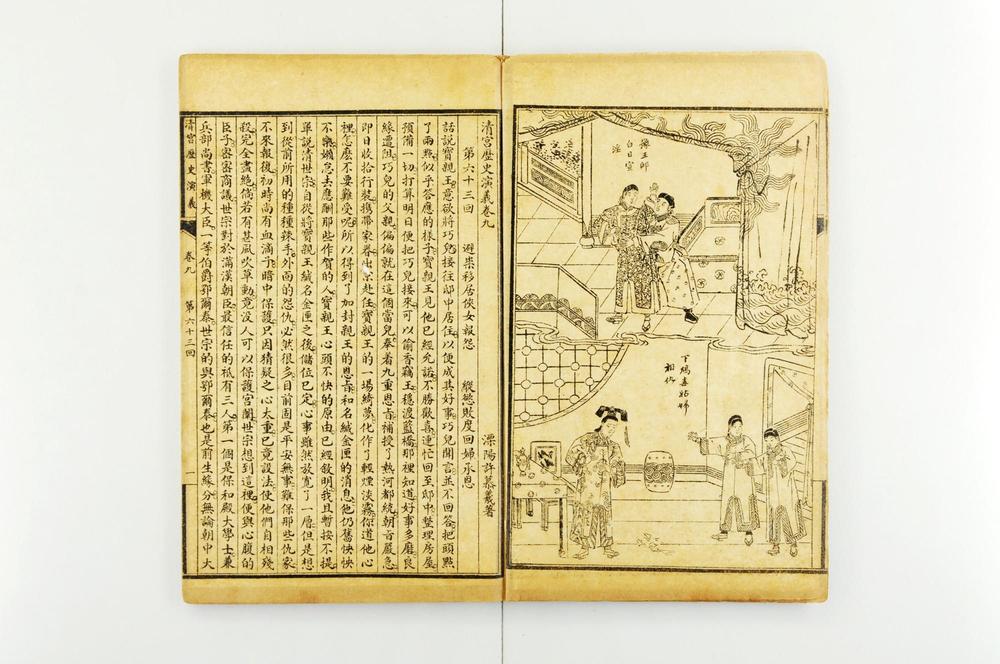 白日宣
淫
相仇
清宮歷史演義卷九
溧陽許慕羲著
第六十三回　避柴移居俠女報怨　縱慾敗度回婦承恩
話說寶親王意欲將巧兒接往邸中居住以便成其好事巧兒聞言並不回答把頭點
了兩點似乎答應的樣子寶親王見他已經允諾不勝歡喜連忙回至邸中整理房屋
預備一切打算明日便把巧兒接來可以偷香竊玉穩渡藍橋那裡知道好事多磨良
緣遭阻巧兒的父親偏偏就在這個當兒奉着九重恩旨補授了熱河都統朝旨嚴急
即日收拾行裝攜帶家眷出京赴任寶親王的一場綺夢化作了輕煙淡霧你道他心
裡怎麼不要難受呢所以得到了加封親王的恩旨和名緘金匣的消息他仍舊怏怏
不樂嬾怠去應酬那些作賀的人寶親王心頭不快的原由已經敘明我且暫按不提
單說清世宗自從將寶親王緘名金匣之後儲位已定心事雖然放寬了一層但是想
到從前所用的種種辣手外面的怨仇必然很多目前固是平安無事難保那些仇家
不來報復初時尚有血滴子暗中保護只因猜疑之心太重已竟設法使他們自相殘
殺完全盡絕倘若有甚風吹草動竟沒人可以保護宮闈世宗想到這裡便與心腹的
臣子密密商議世宗對於滿漢朝臣最信任的祗有三人第一個是保和殿大學士兼
兵部尚書軍機大臣一等伯爵鄂爾泰世宗的與鄂爾泰也是前生緣分無論朝中大
清宮歷史演義
卷九
第六十三回
一